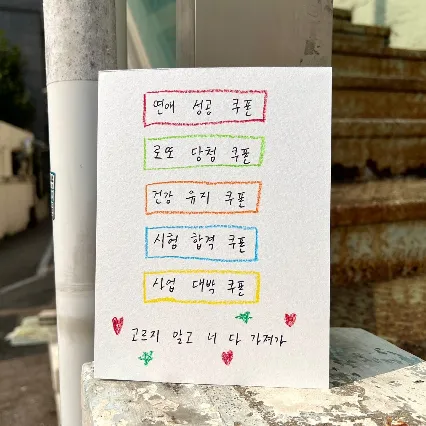 연애 성공 쿠폰
로또 당첨 쿠폰
건강 유지 쿠폰
시험 합격 쿠폰
사업 대박 쿠폰
고르지 말고 너 다 가져가